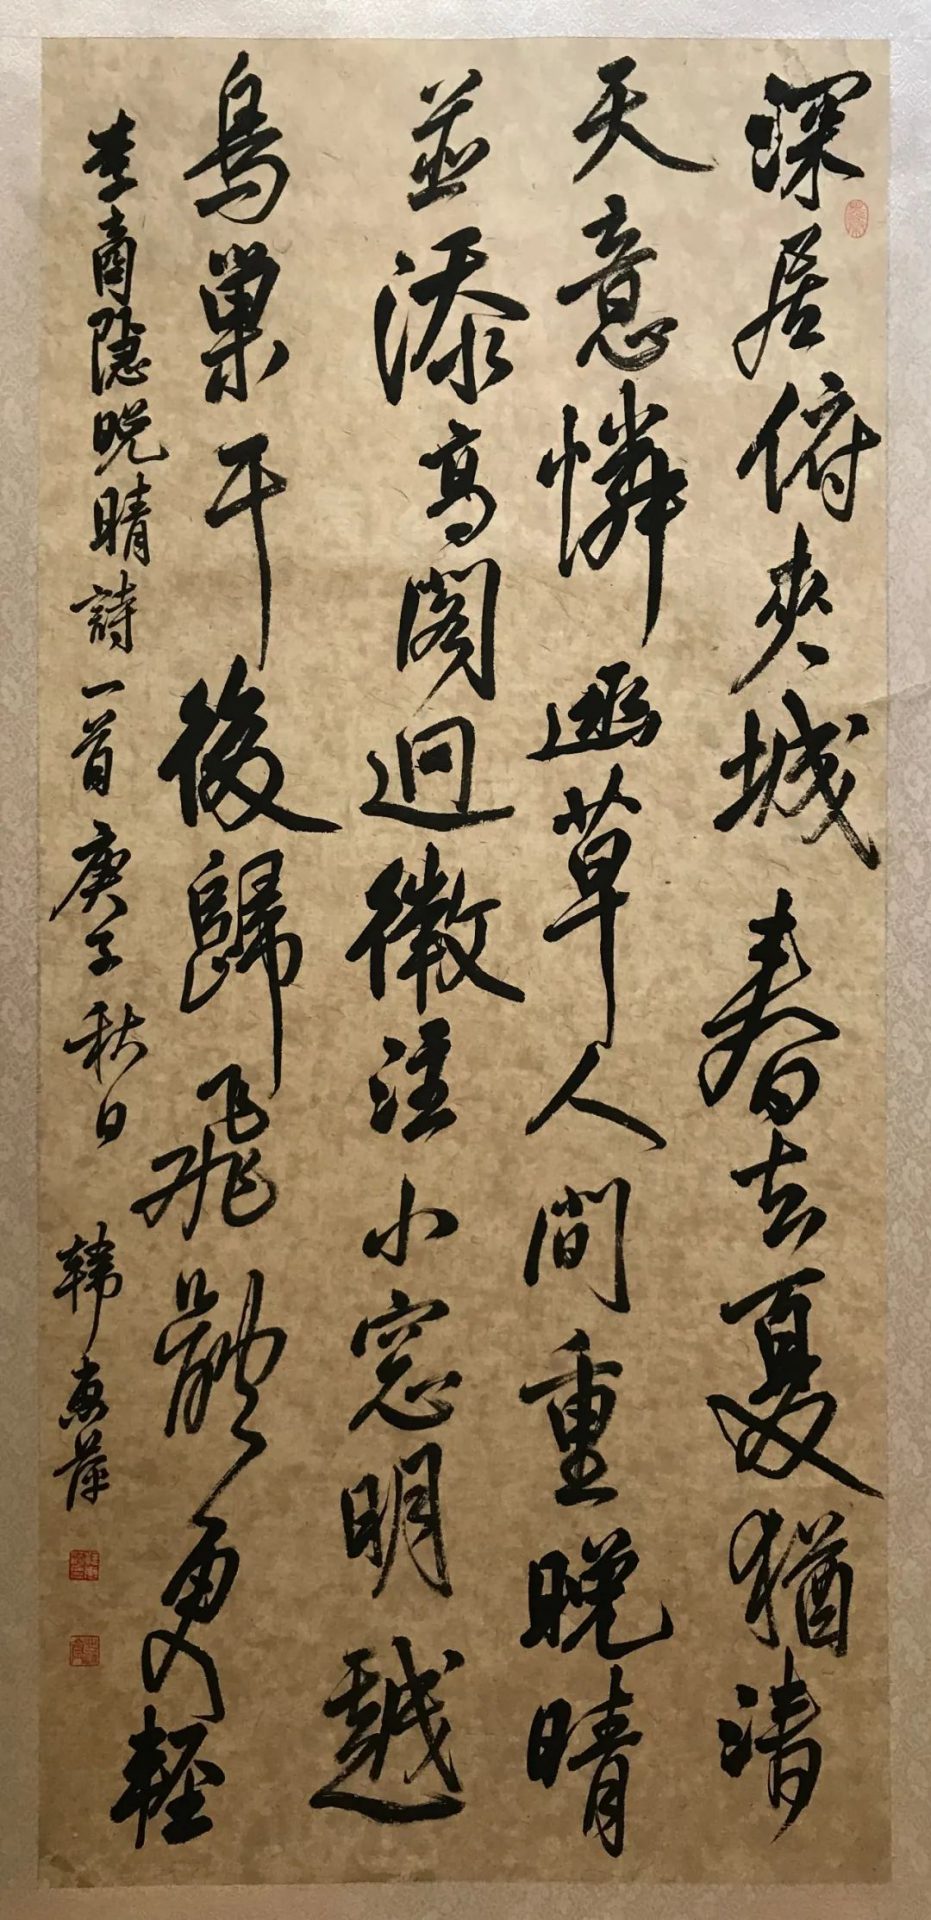 深居俯夾城春去夏猶清
天意憐幽草人間重晚晴
並添高閣迥微注小窓明越
鳥巢干後歸飛體更輕
李商隱晚晴詩一首庚子秋日 韓萍